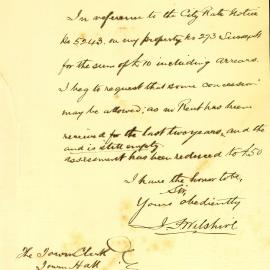 In reference to the City Rate Notice
No 5943. on my property No 293 Sussex St
for the sum of £10 including arrears.
I beg to request that some concession
may be allowed; as no Rent has been
received for the last two years, and the
and is still empty
assessment has been reduced to £50
I have the honor to be,
Sir,
Yours obediently
J Wilshire
The Town Clerk
Town Hall